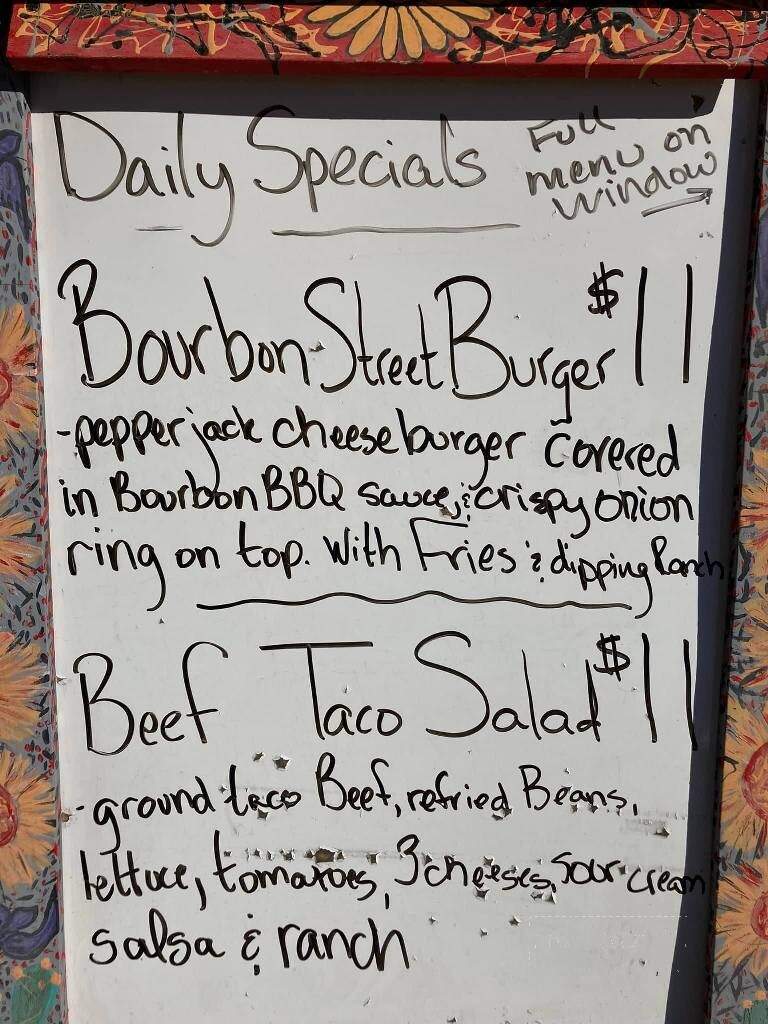 Daily Specials
Full
menu on
window →
Bourbon Street Burger $11
-pepperjack cheeseburger covered
in Bourbon BBQ sauce, & crispy onion
ring on top. With Fries & dipping Ranch
Beef Taco Salad $11
-ground taco Beef, refried Beans,
lettuce, tomatoes, 3 cheeses, sour cream
salsa & ranch